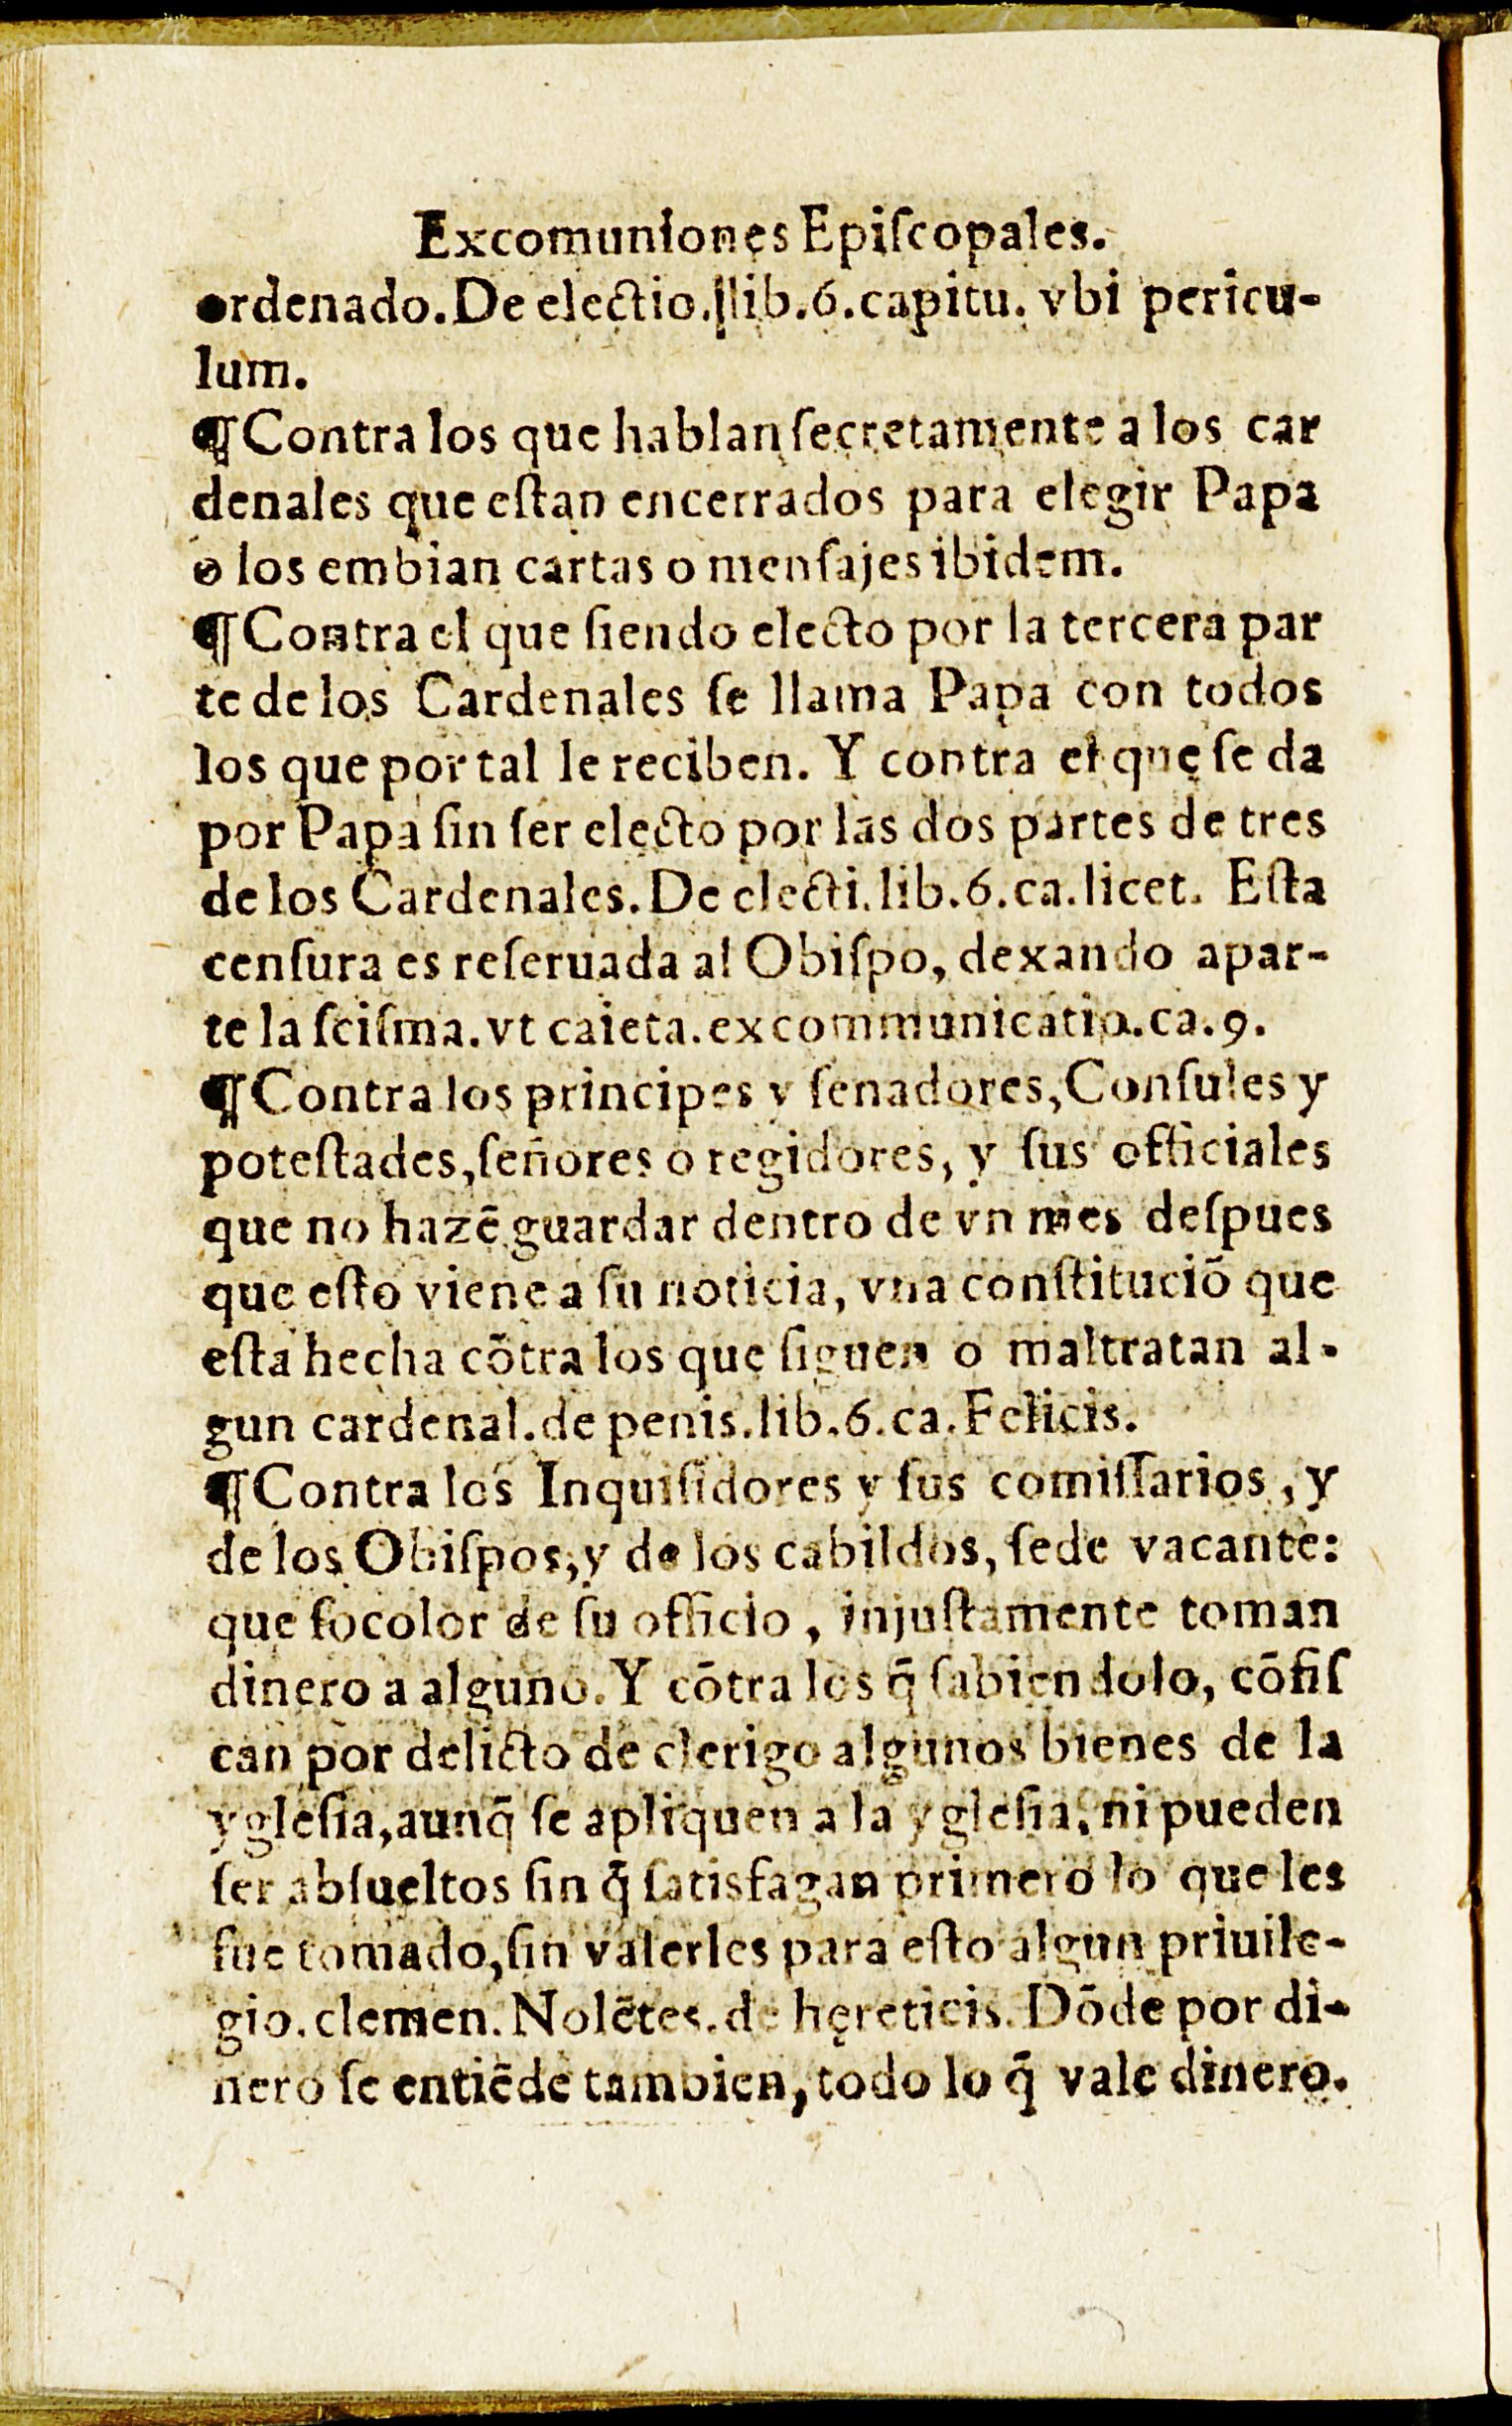 Excomuniones Epiſcopales.
ordenado. De electio. lib. 6. capitu. vbi pericu-
lum.
¶ Contra los que hablan ſecretamente a los car
denales que eſtan encerrados para elegir Papa
o los embian cartas o menſajes ibidem.
¶ Contra el que ſiendo electo por la tercera par
te de los Cardenales ſe llama Papa con todos
los que por tal le reciben. Y contra el que ſe da
por Papa ſin ſer electo por las dos partes de tres
de los Cardenales. De electi. lib. 6. ca. licet. Eſta
cenſura es reſeruada al Obiſpo, dexando apar-
te la ſciſma. vt caieta. excommunicatio. ca. 9.
¶ Contra los principes y ſenadores, Conſules y
poteſtades, ſeñores o regidores, y ſus officiales
que no hazẽ guardar dentro de vn mes deſpues
que eſto viene a ſu noticia, vna conſtituciõ que
eſta hecha cõtra los que ſiguen o maltratan al-
gun cardenal. de penis. lib. 6. ca. Felicis.
¶ Contra los Inquiſidores y ſus comiſſarios, y
de los Obiſpos, y de los cabildos, ſede vacante:
que ſocolor de ſu officio, injuſtamente toman
dinero a alguno. Y cõtra los q̃ ſabiendolo, cõfiſ
can por delicto de clerigo algunos bienes de la
ygleſia, aunq̃ ſe apliquen a la ygleſia, ni pueden
ſer abſueltos ſin q̃ ſatisfagan primero lo que les
fue tomado, ſin valerles para eſto algun priuile-
gio. clemen. Nolẽtes. de hęreticis. Dõde por di-
nero ſe entiẽde tambien, todo lo q̃ vale dinero.